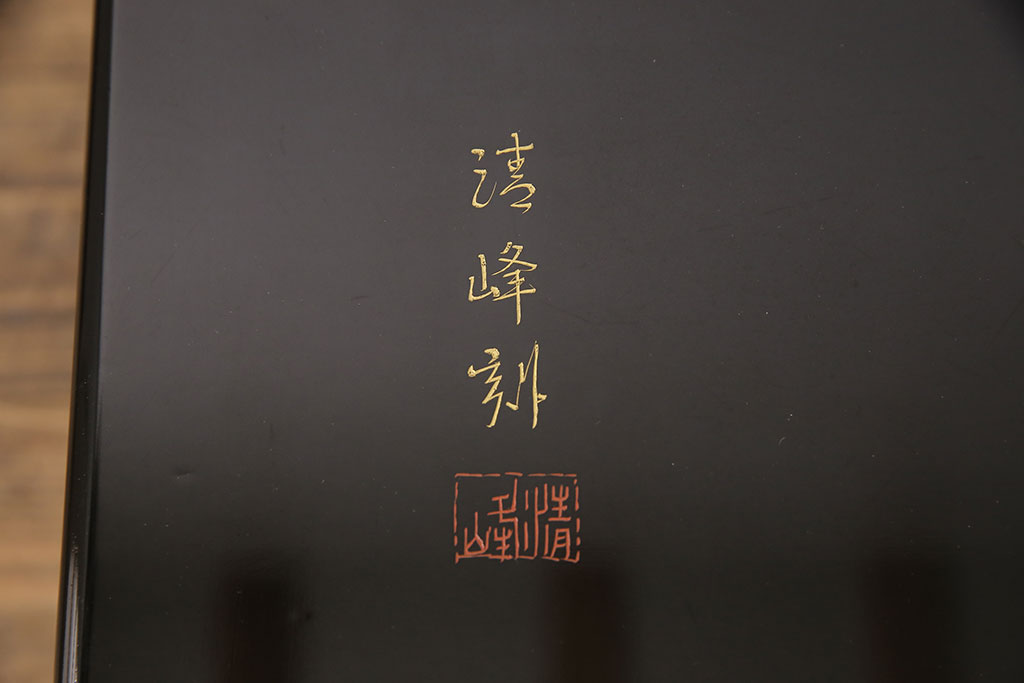 清峰刻
清峰